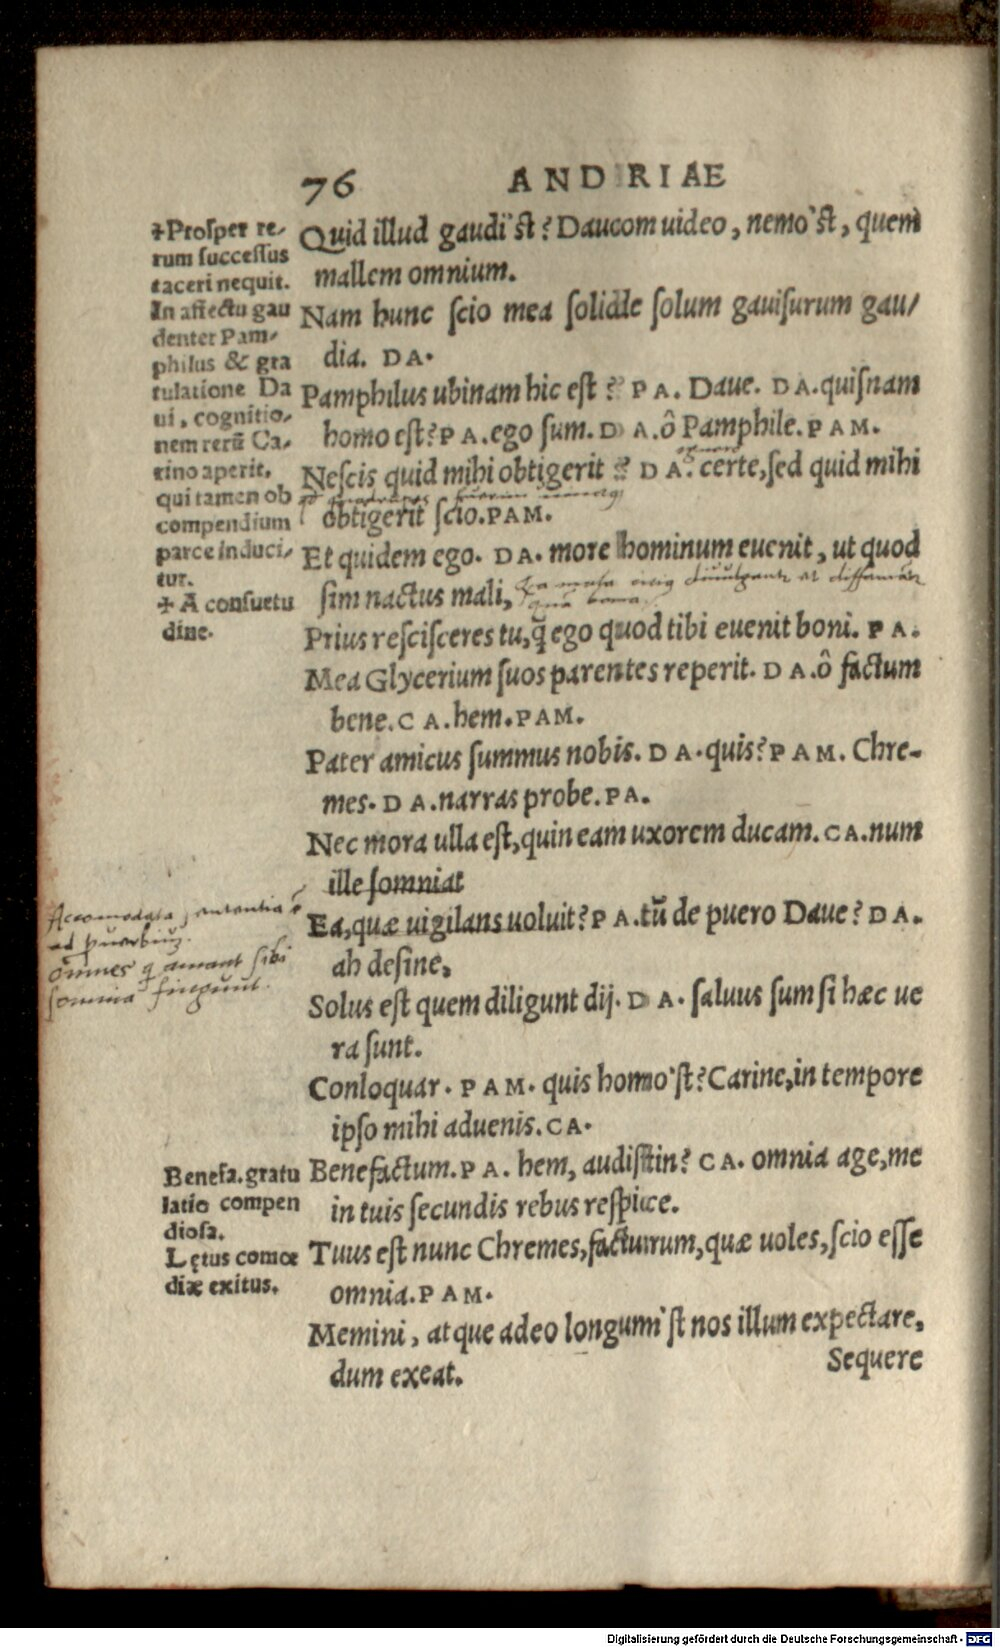 76 ANDRIAE
✢Prosper re-
rum successus
taceri nequit.
In affectu gau
denter Pam-
philus & gra
tulatione Da
ui, cognitio-
nem rerū Ca-
rino aperit,
qui tamen ob
compendium
parce induci-
tur.
✢ A consuetu
dine.
Quid illud gaudi'st? Dauom uideo, nemo'st, quem
mallem omnium.
Nam hunc scio mea solide solum gauisurum gau/
dia. DA.
Pamphilus ubinam hic est? PA. Daue. DA. quisnam
homo est? PA. ego sum. DA. ô Pamphile. PAM.
Nescis quid mihi obtigerit? DA. certe, sed quid mihi
obtigerit scio. PAM.
Et quidem ego. DA. more hominum euenit, ut quod
sim nactus mali,
mala diuulgantur et diffamantur
quā bona.
Prius rescisceres tu, q̄ ego quod tibi euenit boni. PA.
Mea Glycerium suos parentes reperit. DA. ô factum
bene. CA. hem. PAM.
Pater amicus summus nobis. DA. quis? PAM. Chre-
mes. DA. narras probe. PA.
Nec mora ulla est, quin eam uxorem ducam. CA. num
ille somniat
Accomodata sententia
ad
omnes q amant sibi
somnia fingunt.
Ea, quæ uigilans uoluit? PA. tū de puero Daue? DA.
ah desine,
Solus est quem diligunt dij. DA. saluus sum si hæc ue
ra sunt.
Conloquar. PAM. quis homo'st? Carine, in tempore
ipso mihi aduenis. CA.
Benefa. gratu
latio compen
diosa.
Lętus comœ
diæ exitus.
Benefactum. PA. hem, audistin? CA. omnia age, me
in tuis secundis rebus respice.
Tuus est nunc Chremes, facturum, quæ uoles, scio esse
omnia. PAM.
Memini, atque adeo longum'st nos illum expectare,
dum exeat.
Sequere
Digitalisierung gefördert durch die Deutsche Forschungsgemeinschaft - DFG